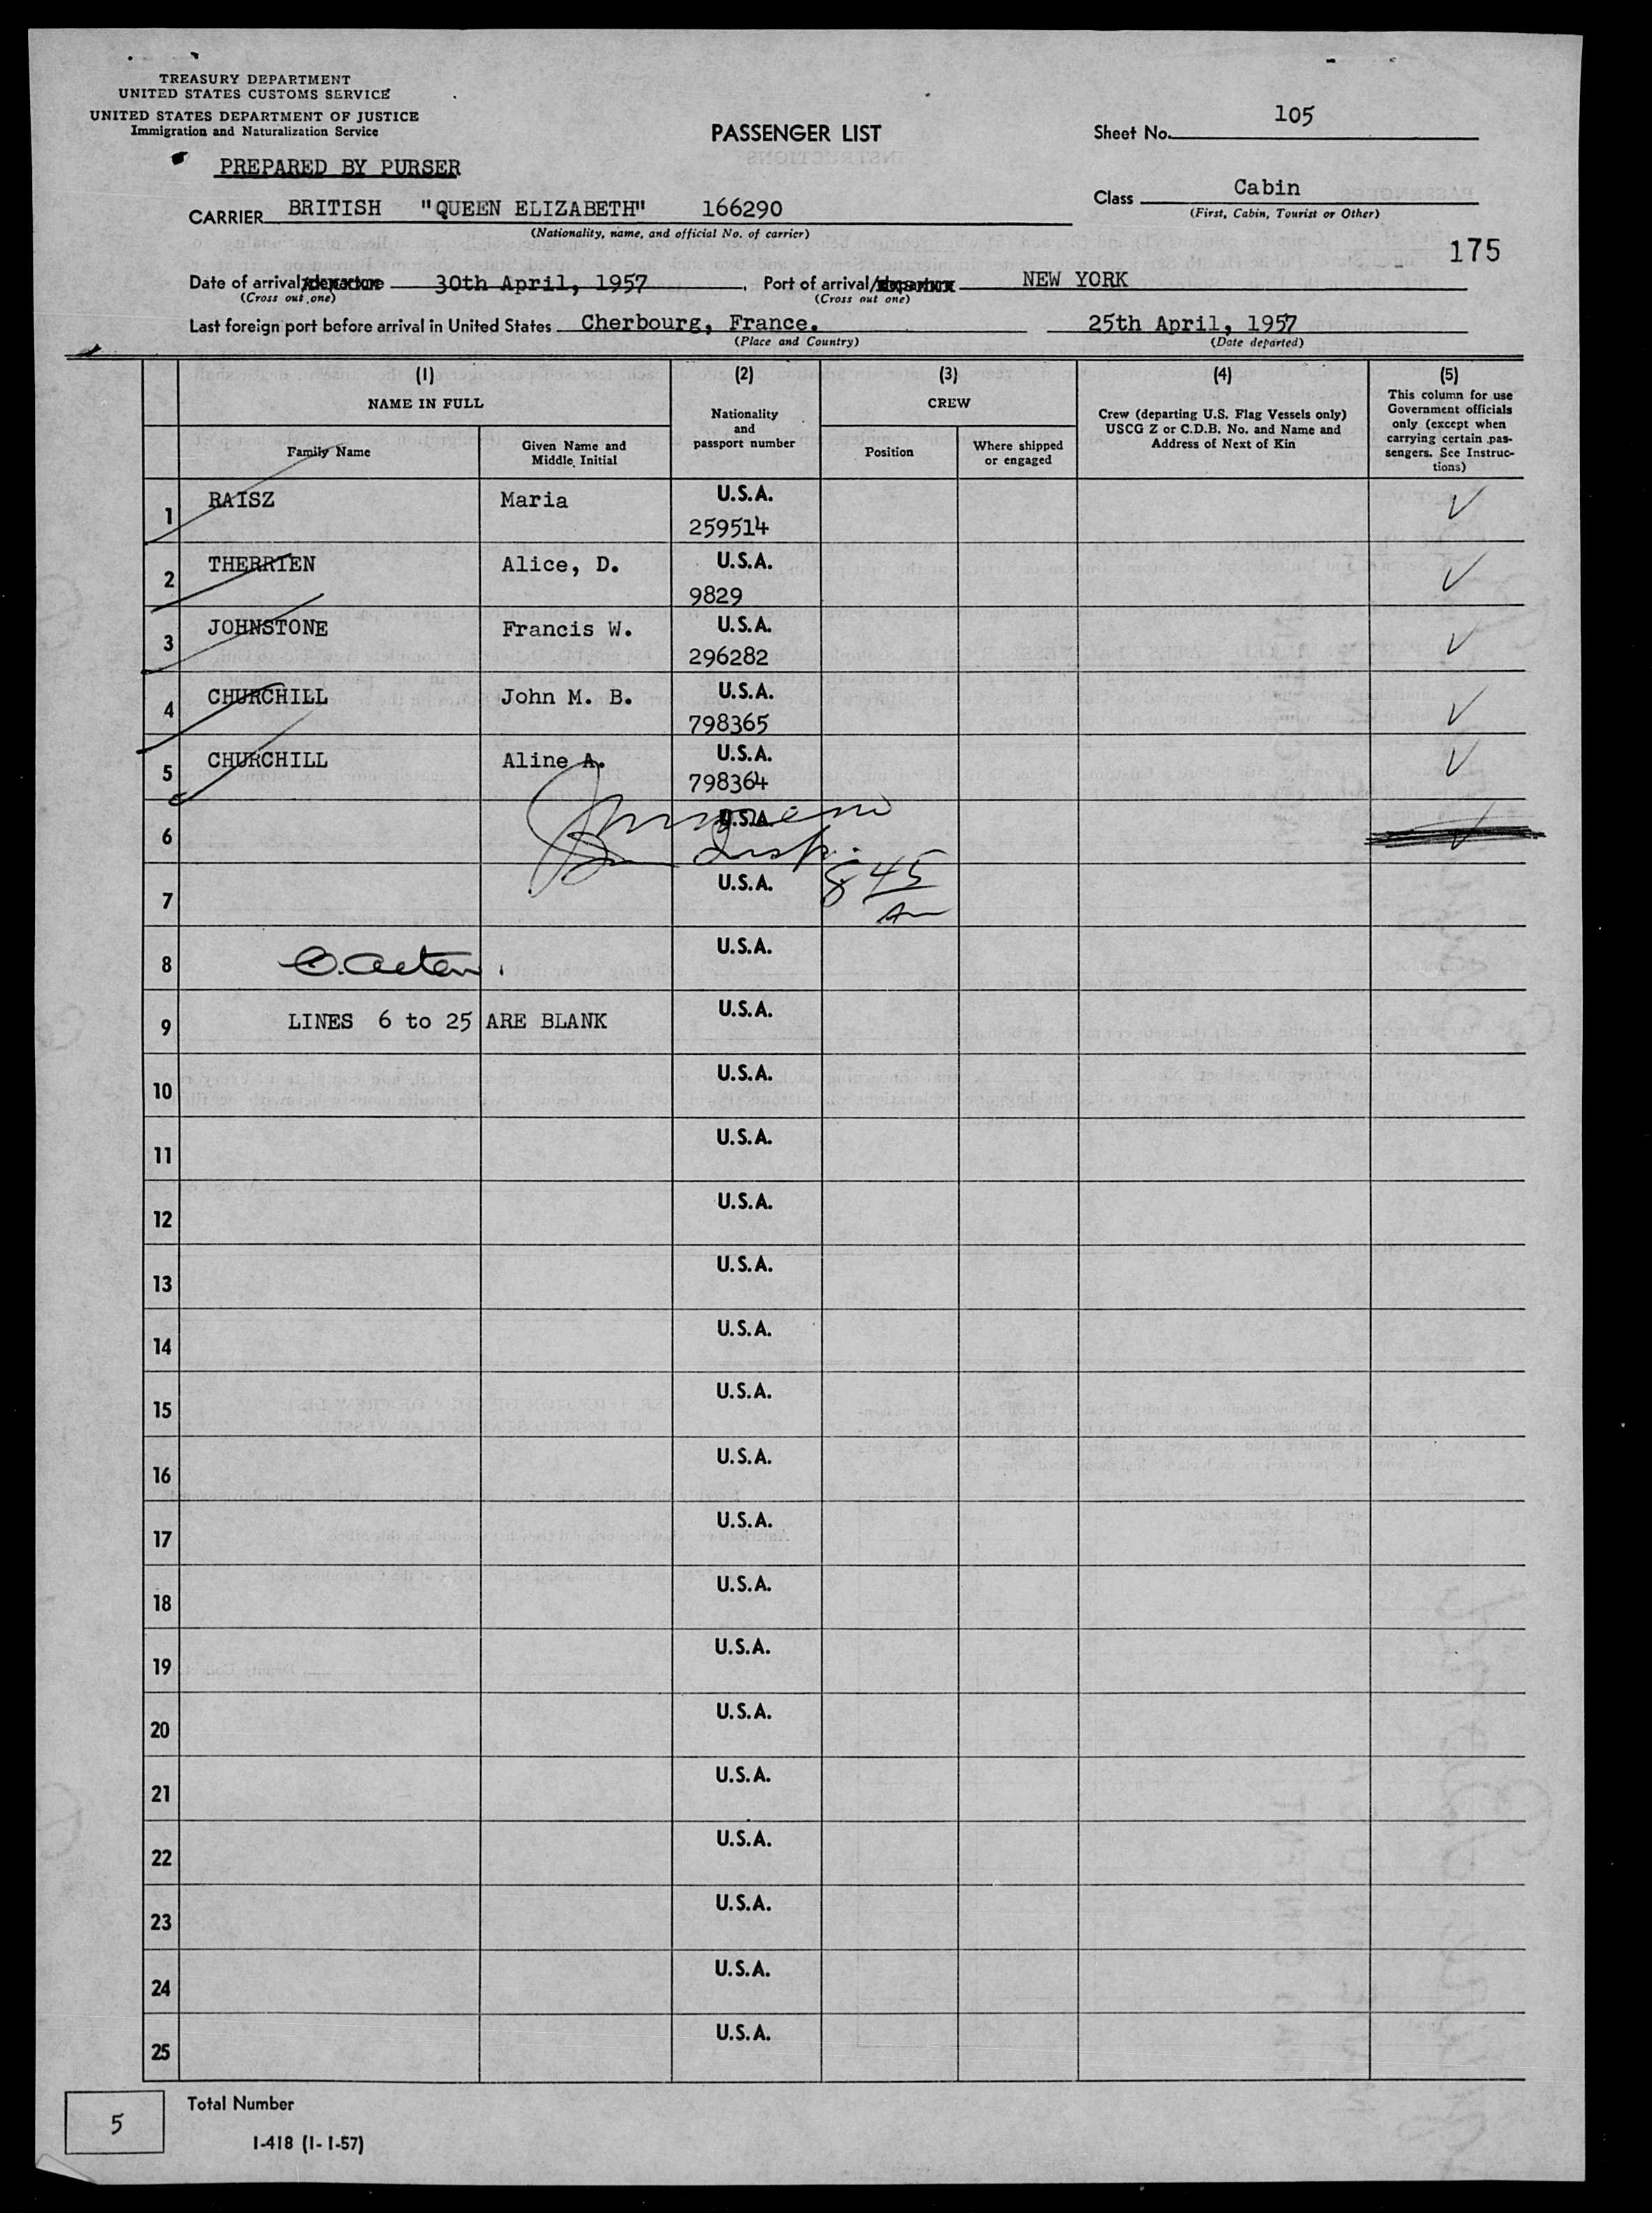 TREASURY DEPARTMENT
UNITED STATES CUSTOMS SERVICE
UNITED STATES DEPARTMENT OF JUSTICE
Immigration and Naturalization Service
PREPARED BY PURSER
PASSENGER LIST
Sheet No. 105
Class Cabin
(First, Cabin, Tourist or Other)
CARRIER BRITISH "QUEEN ELIZABETH" 166290
(Nationality, name, and official No. of carrier)
175
Date of arrival/departure 30th April, 1957, Port of arrival/departure NEW YORK
(Cross out one) (Cross out one)
Last foreign port before arrival in United States Cherbourg, France. 25th April, 1957
(Place and Country) (Date departed)
(1) NAME IN FULL
Family Name
Given Name and Middle Initial
(2)
Nationality and passport number
(3) CREW
Position
Where shipped or engaged
(4)
Crew (departing U.S. Flag Vessels only)
USCG Z or C.D.B. No. and Name and
Address of Next of Kin
(5)
This column for use
Government officials
only (except when
carrying certain pas-
sengers. See Instruc-
tions)
1 RAISZ Maria U.S.A. 259514 ✓
2 THERRIEN Alice, D. U.S.A. 9829 ✓
3 JOHNSTONE Francis W. U.S.A. 296282 ✓
4 CHURCHILL John M. B. U.S.A. 798365 ✓
5 CHURCHILL Aline A. U.S.A. 798364 ✓
6 U.S.A.
Insp.
7 U.S.A. 8 45
Am
8 U.S.A.
9 LINES 6 to 25 ARE BLANK U.S.A.
10 U.S.A.
11 U.S.A.
12 U.S.A.
13 U.S.A.
14 U.S.A.
15 U.S.A.
16 U.S.A.
17 U.S.A.
18 U.S.A.
19 U.S.A.
20 U.S.A.
21 U.S.A.
22 U.S.A.
23 U.S.A.
24 U.S.A.
25 U.S.A.
5 Total Number
I-418 (1-1-57)